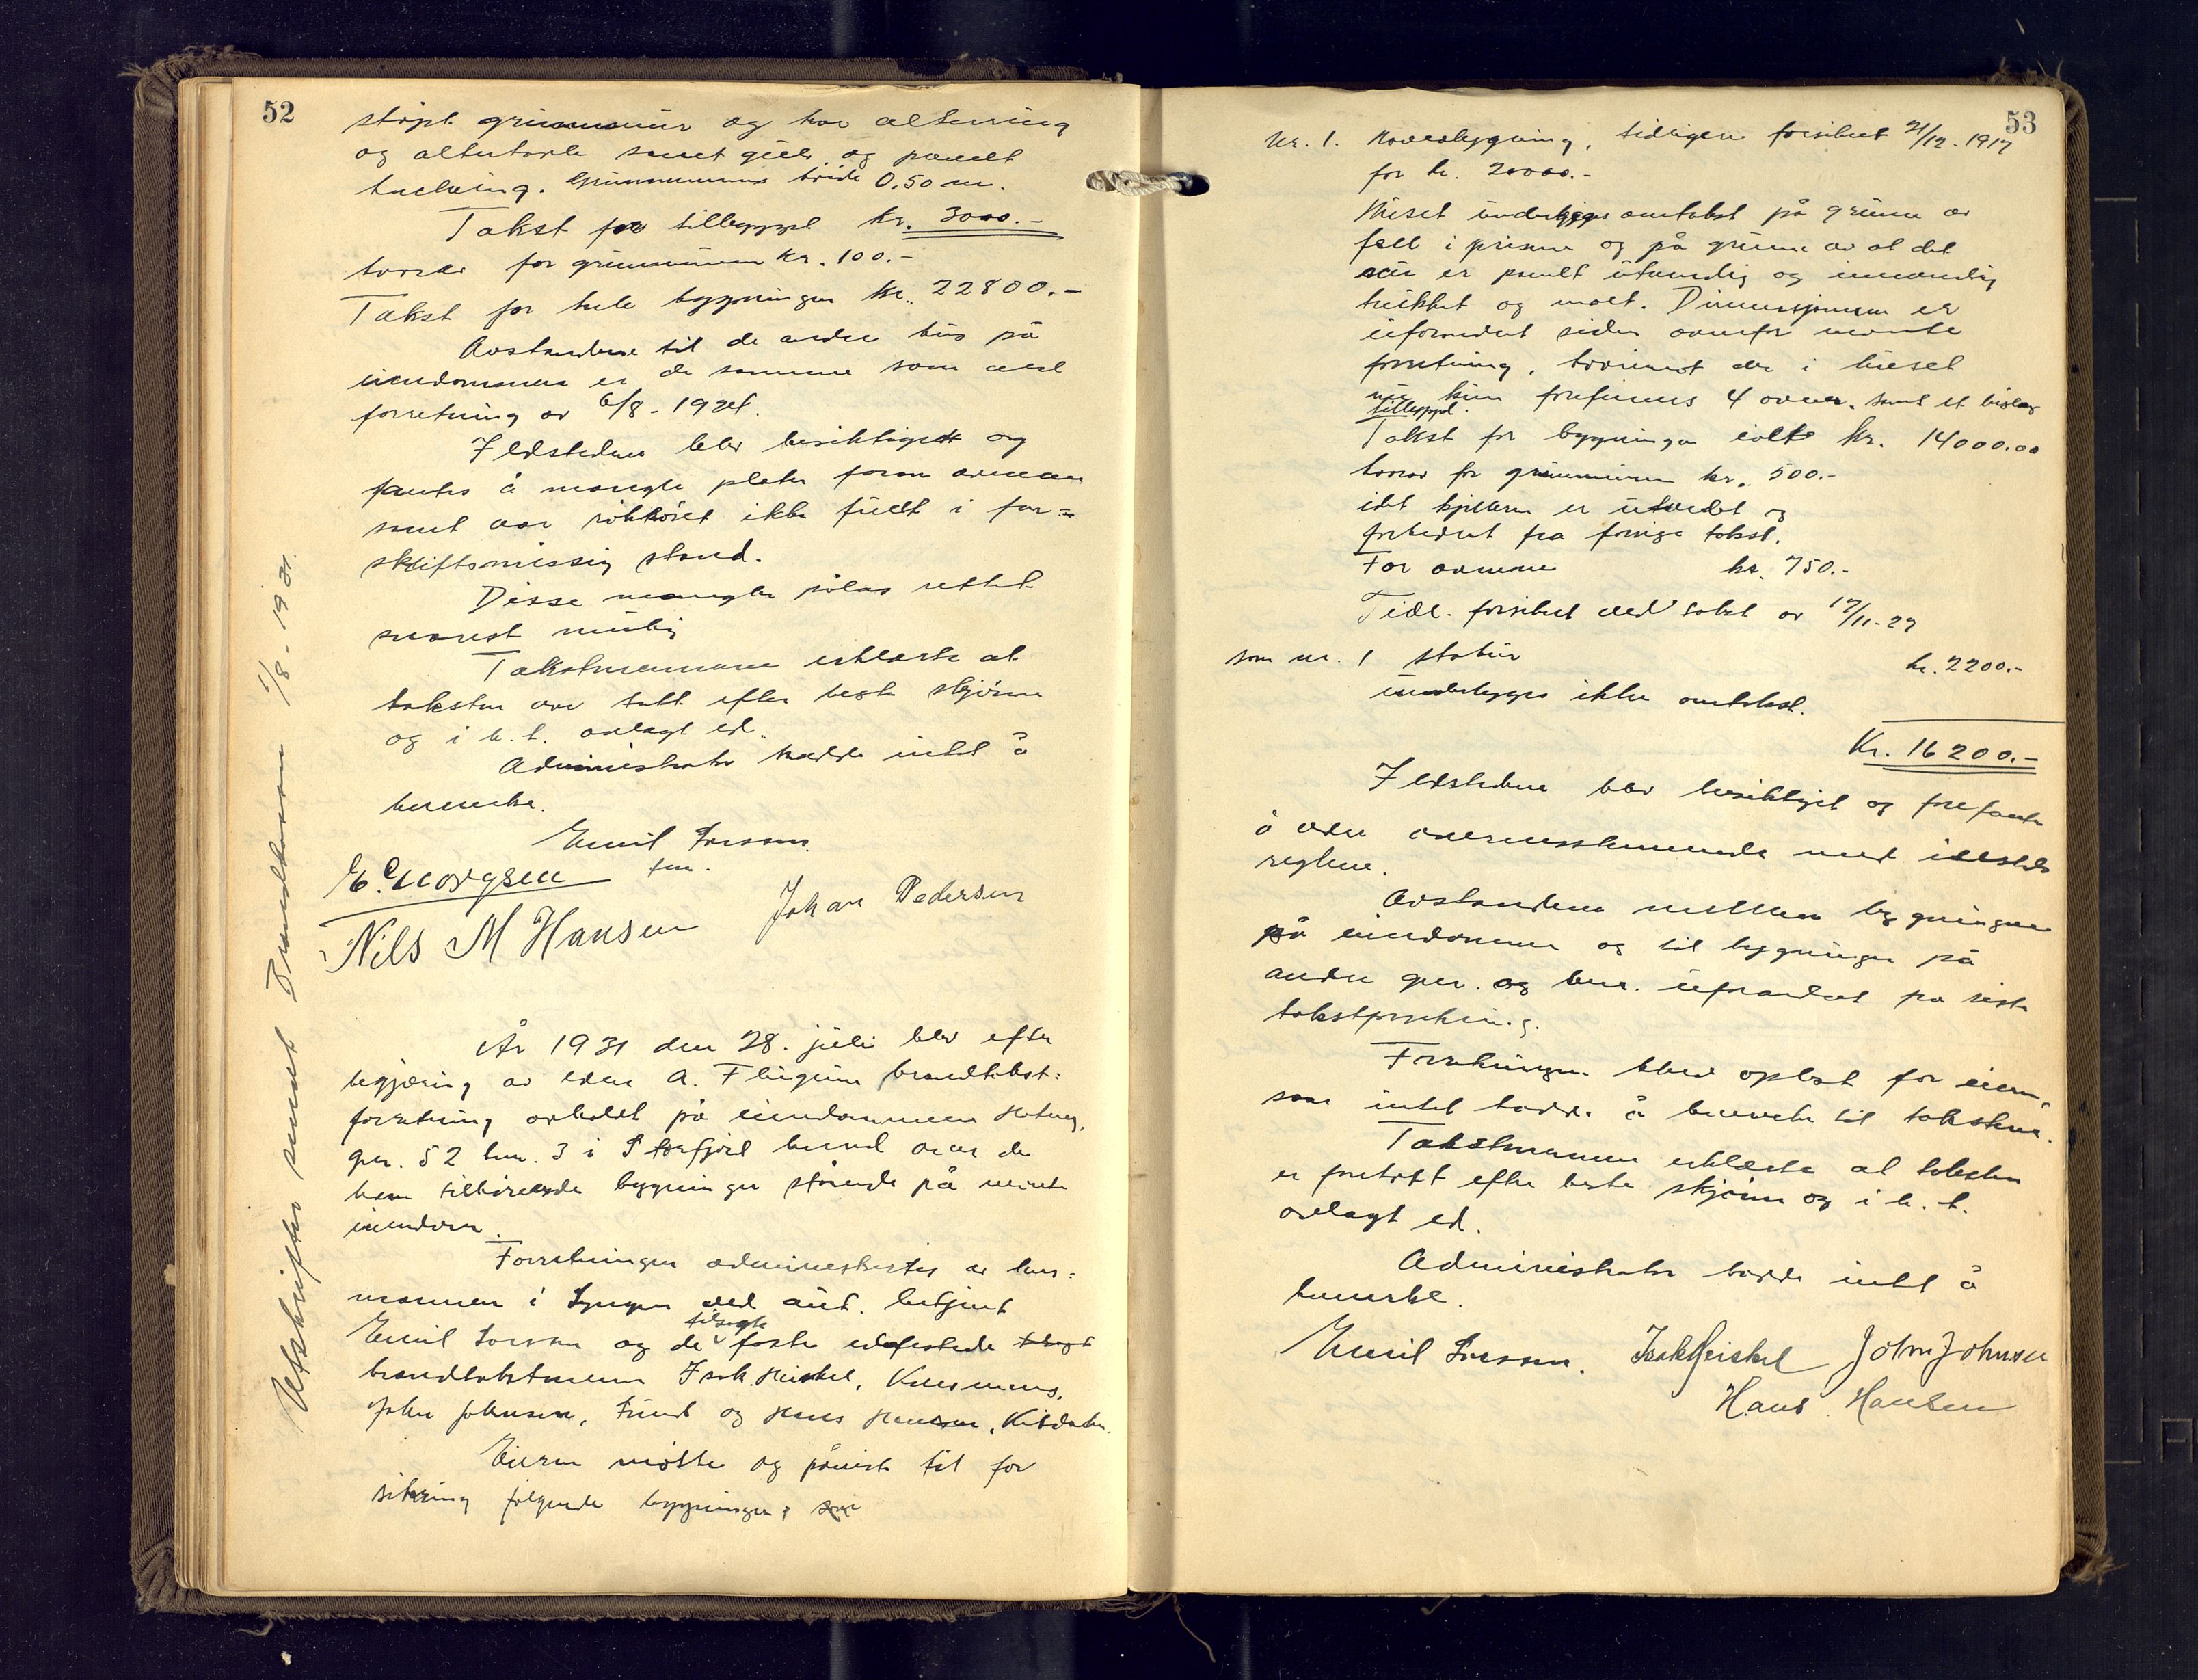 52
støpt grunnmur og har altering
og altertavle samt gulv og panelt
hvelving. Grunnmurens bredde 0,50 m.
Takst for tilbygget kr. 3000.-
herav for grunnmuren kr. 100.-
Takst for hele bygningen kr. 22800.-
Avstandene til de andre hus på
eiendommen er de samme som ved
forretning av 6/8-1924.
Ildstedene blev besiktiget og
fantes å mangle plater foran ovnene
samt var rökröret ikke fullt i for=
skriftsmessig stand.
Disse mangler påla's rettet
snarest mulig
Takstmennene erklærte at
taksten var tatt efter beste skjönn
og i h.t. avlagt ed.
Administrator hadde intet å
bemerke.
Emil Larssen
fm.
E. Georgsen
Nils M Hansen Johan Pedersen
Utskrifter sendt Brandkassen 1/8-1931.
År 1931 den 28. juli blev efter
begjæring av eder A. Flugum brandtakst=
forretning avholdt på eiendommen Hateng,
gnr. 52 bnr. 3 i Storfjord herred over de
ham tilhörende bygninger stående på nevnte
eiendom.
Forretningen administrertes av lens=
mannen i Lyngen ved aut. betjent
Emil Larssen og de tilsagte faste edfestede
brandtakstmenn Isak Heiskel, Kvesmenes,
John Johnsen, Furnes og Hans Hansen, Kitdalen.
Eieren møtte og påviste til for
sikring fölgende bygninger;
53
Nr. 1. Hovedbygning, tidligere forsikret 21/12-1917
for kr. 20000.-
Huset underlegges omtakst på grunn av
fall i prisene og på grunn av at det
nu er panelt utvendig og innvendig
trukket og malt. Dimensjonene er
uforandret siden ovenfor nevnte
forretning, hvorimot der i huset
nu kun forefinnes 4 ovner. samt et bislag
tilbygget.
Takst for bygningen ialt kr. 14000.00
herav for grunnmuren kr. 500.-
idet kjelleren er utvidet og
forbedret fra forrige takst.
For ovnene kr. 750.-
Tidl. forsikret ved takst av 17/11-27
som nr. 1 stabur kr. 2200.-
underlegges ikke omtakst.
Kr. 16200.-
Ildstedene blev besiktiget og forefantes
å være overensstemmende med ildsteds
reglene.
Avstandene mellem bygningene
på eiendommen og til bygninger på
andre gnr. og bnr. uforandret fra siste
takstforretning.
Forretningen blev oplest for eieren,
som intet hadde å bemerke til takstene.
Takstmennene erklærte at taksten
er foretatt efter beste skjönn og i h.t.
avlagt ed.
Administrator hadde intet å
bemerke.
Emil Larssen. Isak Heiskel John Johnsen
Hans Hansen